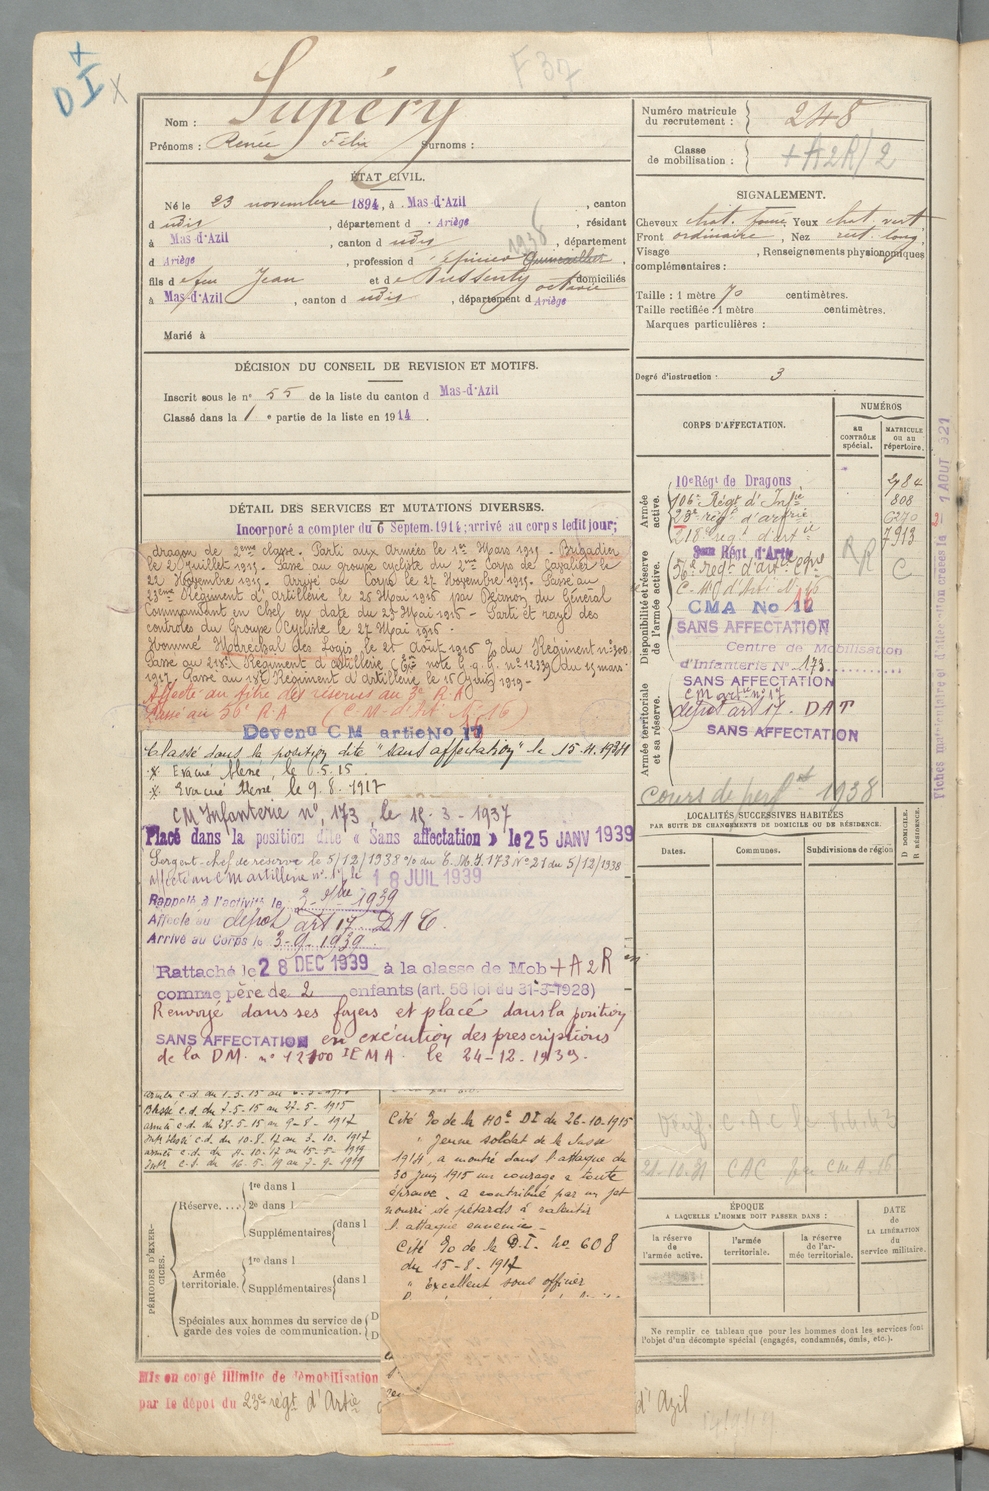 F 37
D I X
Nom : Supéry
Prénoms : Renée Félix Surnoms :
ÉTAT CIVIL.
Né le 23 novembre 1894, à Mas-d'Azil , canton
d udis , département d Ariège , résidant
à Mas-d'Azil , canton d udis , département
d Ariège , profession d' épicier Quincailler , 1936
fils de feu Jean et de Dussenty octavie domiciliés
à Mas-d'Azil , canton d udis , département d Ariège
Marié à
DÉCISION DU CONSEIL DE REVISION ET MOTIFS.
Inscrit sous le n° 55 de la liste du canton d Mas-d'Azil
Classé dans la 1 e partie de la liste en 1914 .
DÉTAIL DES SERVICES ET MUTATIONS DIVERSES.
Incorporé a compter du 6 Septem. 1914; arrivé au corps ledit jour;
dragon de 2ème classe. Parti aux Armées le 1er Mars 1915 - Brigadier
le 2 Juillet 1915. Passé au groupe cycliste du 2me Corps de Cavalerie le
22 Novembre 1915. Arrivé au Corps le 27 Novembre 1915. Passé au
23ème Régiment d'Artillerie le 26 Mai 1916 par décision du Général
Commandant en Chef en date du 27 Mai 1916 - Parti et rayé des
contrôles du Groupe Cycliste le 27 Mai 1916 -
Nommé Maréchal des Logis le 21 Août 1916 O/ du Régiment n° 300.
Passé au 218e Régiment d'artillerie note G.Q.G. n° 12339 du 15 mars
1917. Passé au 18e Régiment d'Artillerie le 15 Juin 1919 -
Affecté au titre des réserves au 3e R.A.
Passé au 56e R.A (C.M. d'Art N° 16)
Devenu C M artie No 17
Classé dans la position dite "sans affectation" le 15.11.1931
* Evacué blessé, le 6.5.15
* Evacué blessé le 9.8.1917
CM Infanterie n°, 173, le 18.3-1937
Placé dans la position dite « Sans affectation » le 25 JANV 1939
Sergent-chef de réserve le 5/12/1938 o/o du C.M.I. 173 N° 21 du 5/12/1938
Affecté au CM artillerie n° 17 le 18 JUIL 1939
Rappelé à l'activité le 3 - 9bre 1939
Affecté au dépôt art 17 DAT.
Arrivé au Corps le 3-9.1939.
Rattaché le 28 DEC 1939 à la classe de Mob + A 2 R
comme père de 2 enfants (art. 58 loi du 31-3-1928)
Renvoyé dans ses foyers et placé dans la position
SANS AFFECTATION en exécution des prescriptions
de la DM. n° 12100 IEMA. le 24-12-1939.
Blessé c.d. du 7-5-15 au 27-5-1915
armée c.d. du 28-5.15 au 9-8-1917
Intr blessé c.d. du 10.8.17 au 3-10.1917
armée c.d. du 4-10.17 au 15-5-1919
Intr c.d. du 16.5.19 au 7-9-1919
Cité o/o de la 110e DI du 26-10-1915
" Jeune soldat de la classe
1914, a montré dans l'attaque du
30 Juin 1915 un courage a toute
épreuve, a contribué par un jet
nourri de pétards à ralentir
l'attaque ennemie -
Cité o/o de la D.I. no 608
du 15-8-1917
" Excellent sous officier
PÉRIODES D'EXERCICES.
Réserve. ...
1re dans l
2e dans l
Supplémentaires dans l
Armée territoriale.
1re dans l
Supplémentaires dans l
Spéciales aux hommes du service de garde des voies de communication.
D
D
Mis en congé illimité de démobilisation
par le dépôt du 23e régt d'Artie d'Azil
Numéro matricule du recrutement : 248
Classe de mobilisation : + A2R/2
SIGNALEMENT.
Cheveux chat. foncé Yeux chat. vert
Front ordinaire , Nez rect. long
Visage , Renseignements physionomiques
complémentaires :
Taille : 1 mètre 70 centimètres.
Taille rectifiée : 1 mètre centimètres.
Marques particulières :
Degré d'instruction : 3
CORPS D'AFFECTATION.
NUMÉROS
au CONTRÔLE spécial.
MATRICULE ou au répertoire.
Armée active.
10e Régt de Dragons 2784
106e Régt d'Infie 808
23e régt d'artrie 6270
218e régt d'artie 7913
Disponibilité et réserve de l'armée active.
3eme Régt d'Artie
56e régt d'artie RR C
C.M. d'Art N° 16
CMA No 12
SANS AFFECTATION
Centre de Mobilisation
d'Infanterie N° 173
SANS AFFECTATION
Armée territoriale et sa réserve.
CM artie n° 17
dépôt art 17. DAT
SANS AFFECTATION
Cours de perft 1938
Fiches matriculaire et d'affectation créées le 1 AOUT 921
LOCALITÉS SUCCESSIVES HABITÉES
PAR SUITE DE CHANGEMENTS DE DOMICILE OU DE RÉSIDENCE.
Dates. Communes. Subdivisions de région
D DOMICILE.
R RÉSIDENCE.
C.A.C le
21-10-31 CAC par CMA-16
ÉPOQUE
A LAQUELLE L'HOMME DOIT PASSER DANS :
la réserve de l'armée active.
l'armée territoriale.
la réserve de l'armée territoriale.
DATE de LA LIBÉRATION du service militaire.
Ne remplir ce tableau que pour les hommes dont les services font
l'objet d'un décompte spécial (engagés, condamnés, omis, etc.).